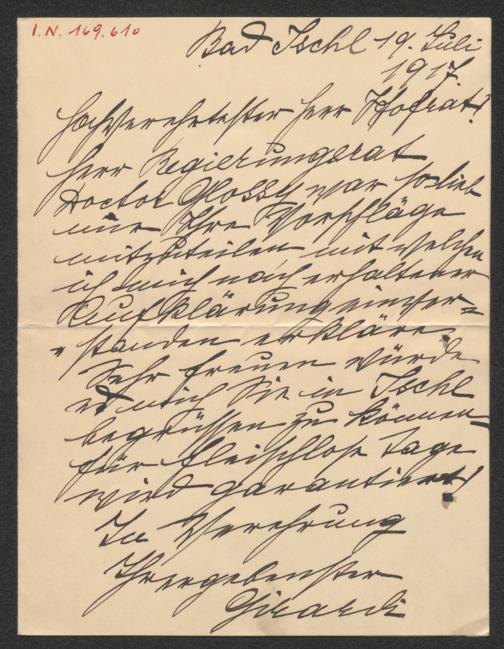 I.N. 169.610
Bad Ischl 19. Juli
1917
Hochverehrtester Herr Hofrat!
Herr Regierungsrat
Doctor Glossy war so lieb
mir Ihre Vorschläge
mitzuteilen mit welchen
ich mich nach erhaltener
Aufklärung einver=
standen erkläre.
Sehr freuen würde
es mich Sie in Ischl
begrüssen zu können
für fleischlose Tage
wird garantiert!
In Verehrung
Ihr ergebenster
Girardi